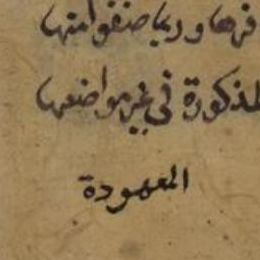 وربما صنفوا منها
المذكورة في غير مواضعها
المعهودة